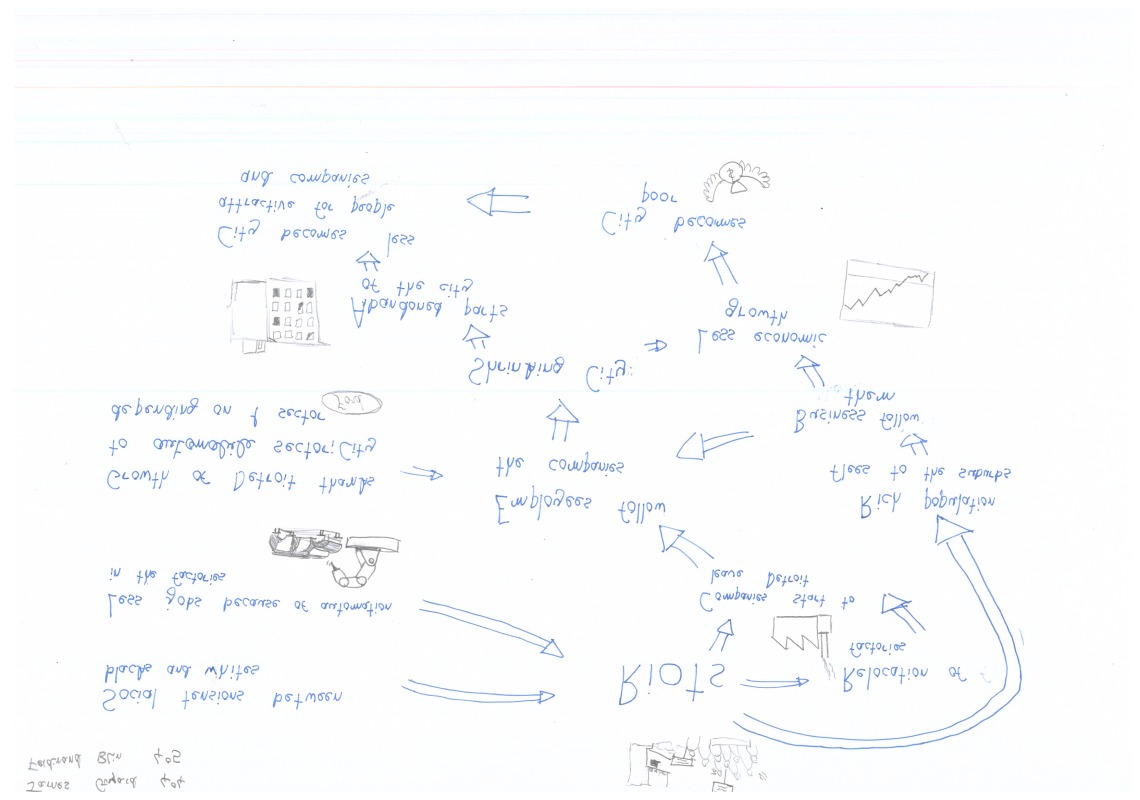 James 404
Blin 405
Social tensions between
blacks and whites
Less jobs because of automation
in the factories
Growth of Detroit thanks
to automobile sector; City
depending on 1 sector
Ford
Riots
Relocation of
factories
Companies start to
leave Detroit
Employees follow
the companies
Rich population
flees to the suburbs
Business follow
them
Shrinking City:
Less economic
growth
Abandoned parts
of the city
City becomes
poor
City becomes less
attractive for people
and companies